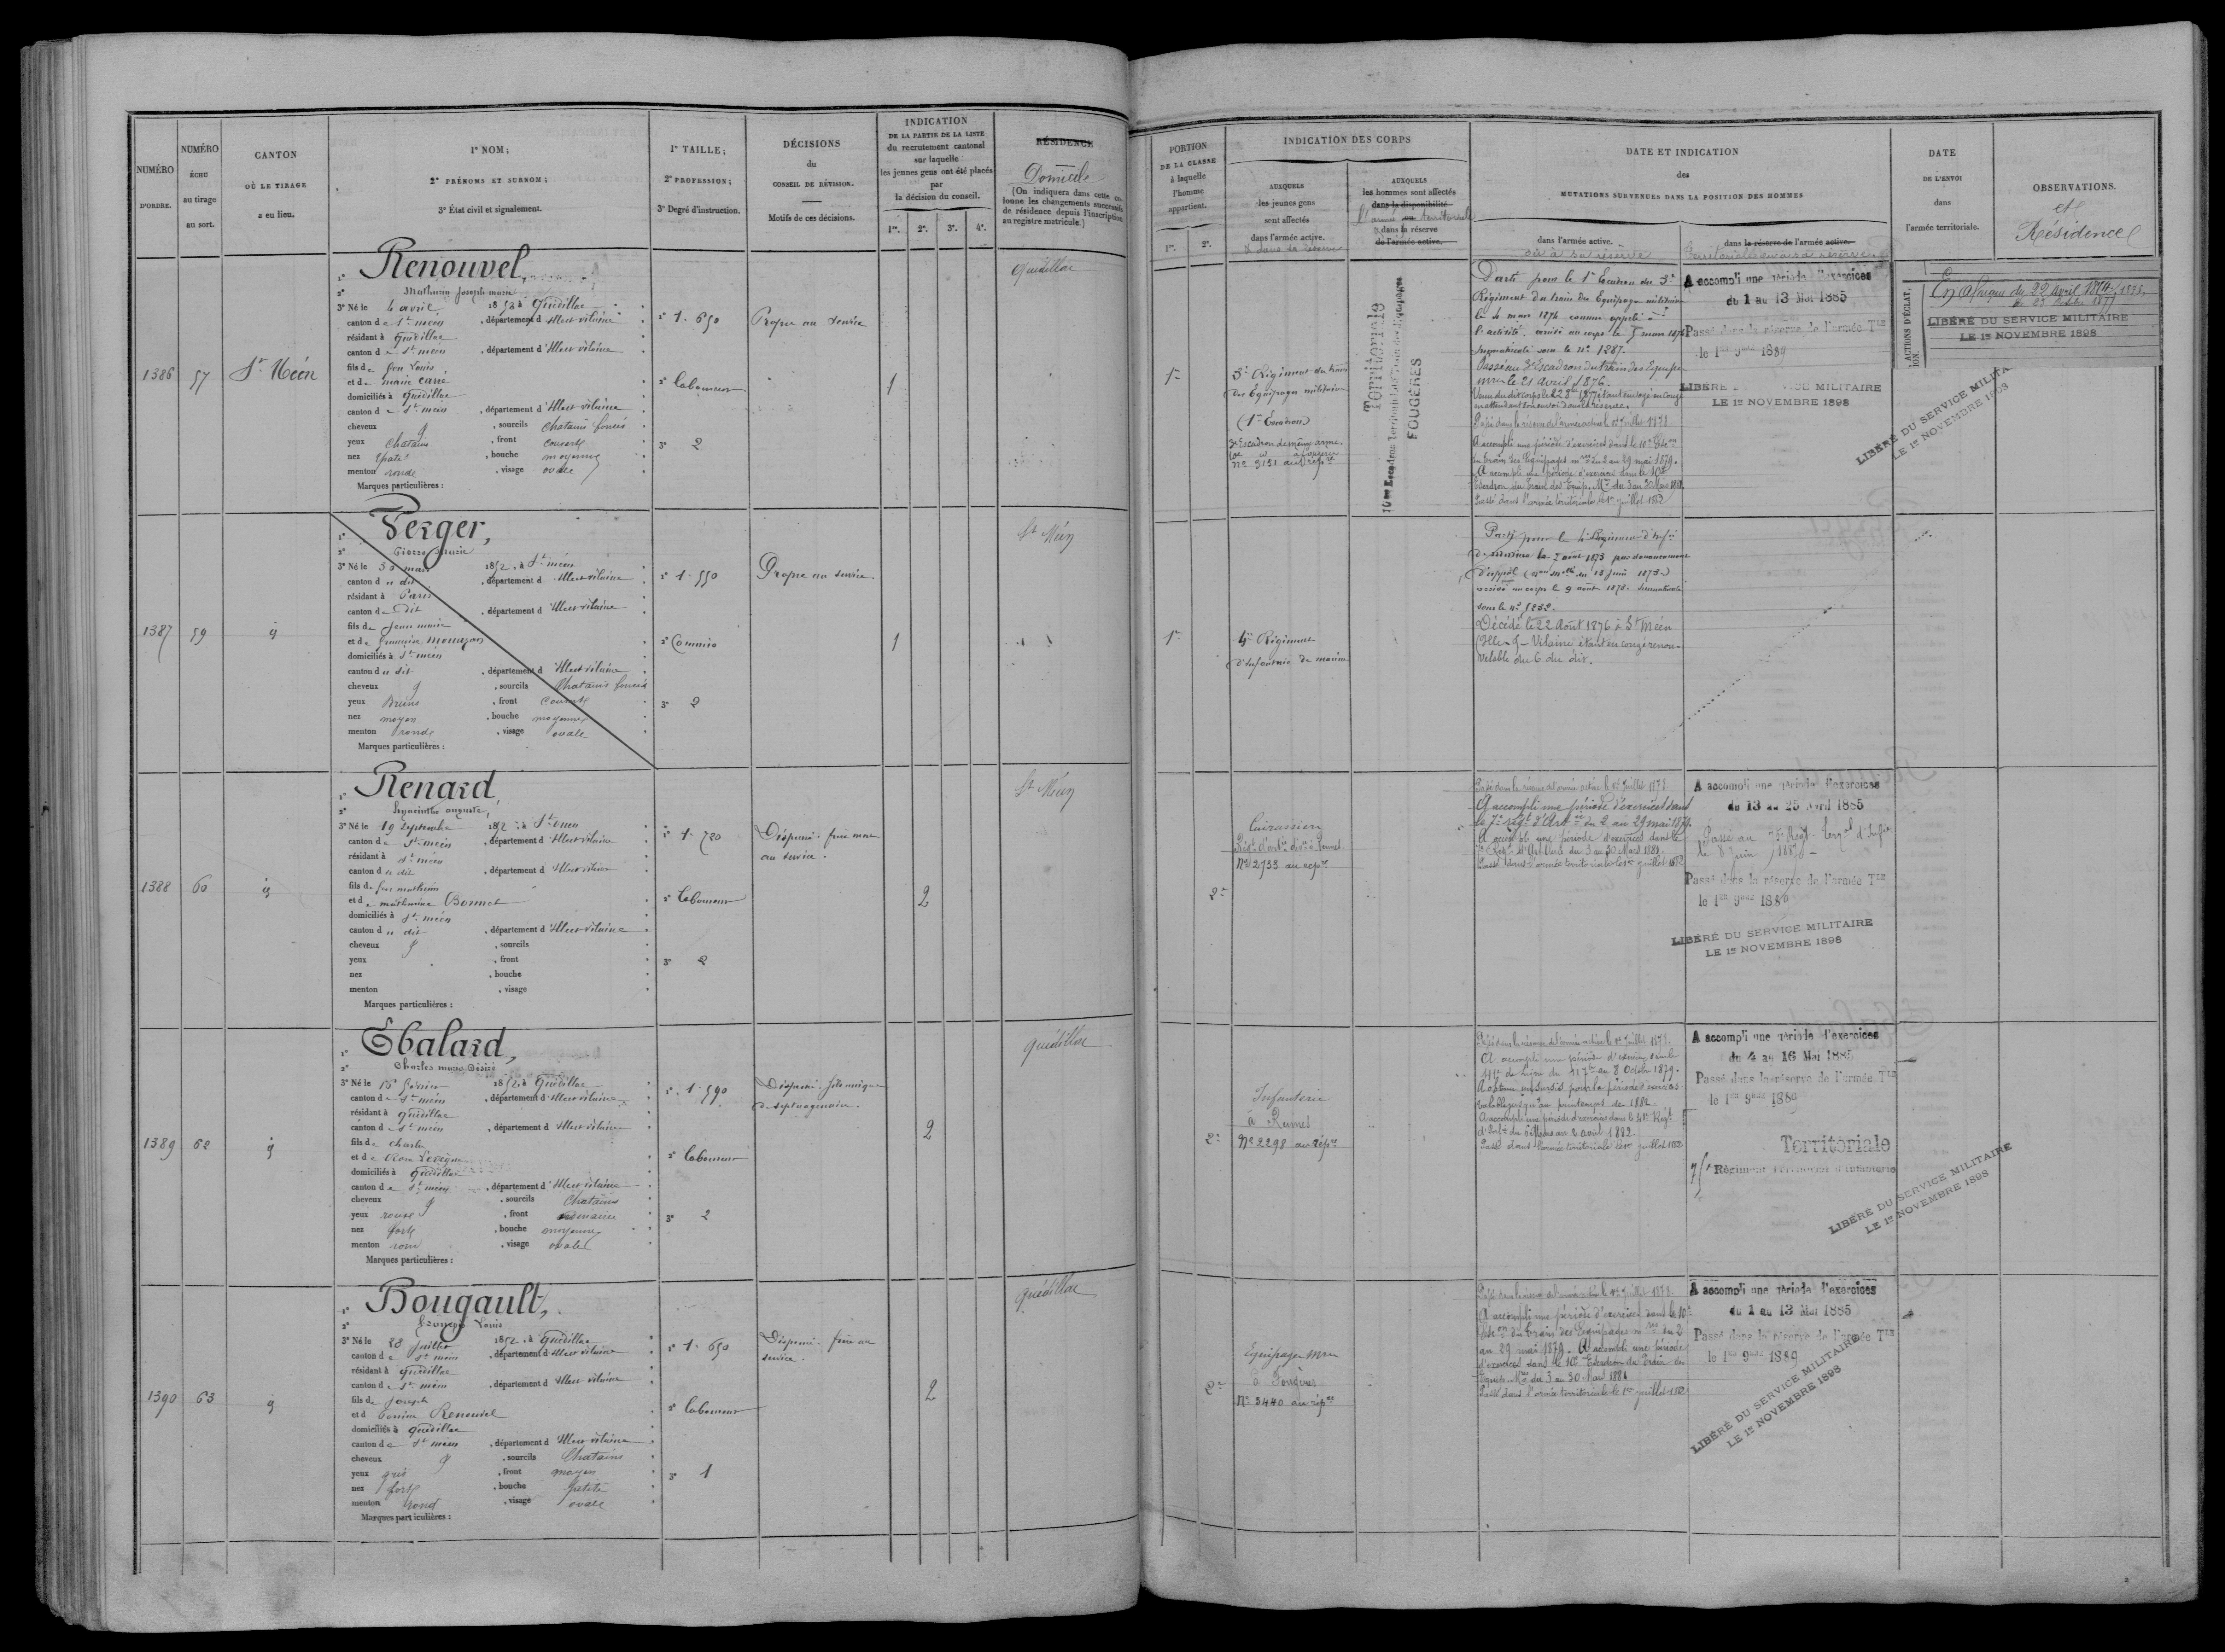 NUMÉRO
D'ORDRE.
NUMÉRO
ÉCHU
au tirage
au sort.
CANTON
OÙ LE TIRAGE
a eu lieu.
1° NOM;
2° PRÉNOMS ET SURNOM;
3° État civil et signalement.
1° TAILLE;
2° PROFESSION;
3° Degré d'instruction.
DÉCISIONS
du
CONSEIL DE RÉVISION.
Motifs de ces décisions.
INDICATION
DE LA PARTIE DE LA LISTE
du recrutement cantonal
sur laquelle
les jeunes gens ont été placés
par
la décision du conseil.
1re. 2e. 3e. 4e.
RÉSIDENCE
Domicile
(On indiquera dans cette co-
lonne les changements successifs
de résidence depuis l'inscription
au registre matricule.)
1386
57
St Méen
Renouvel,
2° Mathurin Joseph marie
3° Né le 4 avril 1852 à Quédillac
canton de St méen, département d'Ille et vilaine
résidant à Quédillac
canton de St méen, département d'Ille et vilaine
fils de feu Louis
et de marie Carré
domiciliés à Quédillac
canton de St méen, département d'Ille et vilaine
cheveux, sourcils chatains foncés
yeux chatains, front couvert
nez épaté, bouche moyenne
menton ronde, visage ovale
Marques particulières :
1° 1.650
2° Laboureur
3° 2
Propre au service
1
Quédillac
1387
59
id
Perger,
2° Pierre marie
3° Né le 30 mars 1852, à St méen
canton du dit, département d'Ille et vilaine
résidant à Paris
canton de dit, département d'Ille et vilaine
fils de Jean marie
et de françoise Mouazan
domiciliés à St méen
canton du dit, département d'Ille et vilaine
cheveux, sourcils Chatains foncés
yeux Bruns, front Couvert
nez moyen, bouche moyenne
menton ronde, visage ovale
Marques particulières :
1° 1.550
2° Commis
3° 2
Propre au service.
1
St Méen
1388
60
id
Renard,
2° hyacinthe auguste,
3° Né le 19 Septembre 1852 à St méen
canton de St méen, département d'Ille et vilaine
résidant à St méen
canton du dit, département d'Ille et vilaine
fils de feu mathurin
et de mathurine Bonnet
domiciliés à St méen
canton du dit, département d'Ille et vilaine
cheveux, sourcils
yeux, front
nez, bouche
menton, visage
Marques particulières :
1° 1.720
2° Laboureur
3° 2
Dispensé. frère mort
au service.
2
St Méen
1389
62
id
Ebalard,
2° Charles marie Désiré
3° Né le février 1852, à Quédillac
canton de St méen, département d'Ille et vilaine
résidant à Quédillac
canton de St méen, département d'Ille et vilaine
fils de Charles
et de Rose
domiciliés à Quédillac
canton de St méen, département d'Ille et vilaine
cheveux, sourcils Chatains
yeux roux, front ordinaire
nez fort, bouche moyenne
menton rond, visage ovale
Marques particulières :
1° 1.590
2° Laboureur
3° 2
Dispensé. fils unique
de septuagénaire.
2
Quédillac
1390
63
id
Bougault,
2° François Louis
3° Né le 28 Juillet 1852, à Quédillac
canton de St méen, département d'Ille et vilaine
résidant à Quédillac
canton de St méen, département d'Ille et vilaine
fils de Joseph
et d Perrine Renouvel
domiciliés à Quédillac
canton de St méen, département d'Ille et vilaine
cheveux, sourcils Chatains
yeux gris, front moyen
nez fort, bouche petite
menton rond, visage ovale
Marques particulières :
1° 1.650
2° Laboureur
3° 1
Dispensé. frère au
service.
2
Quédillac
PORTION
DE LA CLASSE
à laquelle
l'homme
appartient.
1re. 2e.
INDICATION DES CORPS
AUXQUELS
les jeunes gens
sont affectés
dans l'armée active.
& dans la réserve
AUXQUELS
les hommes sont affectés
dans la disponibilité
l'armée ou territoriale
& dans la réserve
de l'armée active.
DATE ET INDICATION
des
MUTATIONS SURVENUES DANS LA POSITION DES HOMMES
dans l'armée active.
ou à sa réserve
dans la réserve de l'armée active.
territoriale ou à sa réserve
DATE
DE L'ENVOI
dans
l'armée territoriale.
OBSERVATIONS.
et
Résidence
1re
3e Régiment du train
des Equipages militaires
(1er Escadron)
3e Escadron de même arme
Nº 2151 au rép.re
Territoriale
FOUGÈRES
Parti pour le 1er Escadron du 3e
Régiment du train des Equipages militaires
le 4 mars 1874 comme appelé à
l'activité. arrivé au corps le 5 mars 1874
immatriculé sous le nº 1287.
Passé au 3e Escadron du train des Equip.
mres le 21 Avril 1876.
en attendant son envoi dans la réserve.
Passé dans la réserve de l'armée active le 1er juillet 1878
A accompli une période d'exercices dans le 10e Esc.on
du Train des Equipages mres du 2 au 29 mai 1879.
A accompli une période d'exercices dans le 10e
Escadron du Train des Equip. Mres du 3 au 30 Mars 1881.
Passé dans l'armée territoriale le 1er juillet 1882
A accompli une période d'exercices
du 1 au 13 Mai 1885
Passé dans la réserve de l'armée Tle
le 1er 9bre 1889
LIBÉRÉ DU SERVICE MILITAIRE
LE 1er NOVEMBRE 1898
ACTIONS D'ÉCLAT,
En Afrique du 22 Avril 1874
LIBÉRÉ DU SERVICE MILITAIRE
LE 1er NOVEMBRE 1898
LIBÉRÉ DU SERVICE MILITA
LE 1er NOVEMBRE 1898
1re
4e Régiment
d'Infanterie de marine
Parti pour le 4e Régiment d'Inf.rie
de marine le 7 août 1873 par devancement
d'appel (
arrivé au corps le 9 août 1873. immatriculé
sous le nº 5232.
Décédé le 22 Août 1876 à St Méen
(Ille-&-Vilaine) étant en congé renou-
velable du 6 du dit.
2e
Cuirassiers
Nº 2733 au rép.re
Passé dans la réserve de l'armée active le 1er juillet 1878
A accompli une période d'exercices dans
le 7e Régt d'Artie du 2 au 29 mai 1879.
A accompli une période d'exercices dans le
7e Régt d'Artillerie du 3 au 30 Mars 1881.
Passé dans l'armée territoriale le 1er juillet 1882
A accompli une période d'exercices
du 13 au 25 Avril 1885
Passé au 75e Régt Terr.al d'Inf.ie
le 8 Juin 1886
Passé dans la réserve de l'armée Tle
le 1er 9bre 188
LIBÉRÉ DU SERVICE MILITAIRE
LE 1er NOVEMBRE 1898
2e
Infanterie
à Rennes
Nº 2298 au rép.re
Passé dans la réserve de l'armée active le 1er juillet 1878.
A accompli une période d'exercices dans le
41e de Ligne du 11 7bre au 8 Octobre 1879.
A obtenu un sursis pour la période d'exercices
valable jusqu'au printemps de 1882.
A accompli une période d'exercices dans le 41e Régt
d'Infie du 6 Mars au 2 avril 1882.
Passé dans l'armée territoriale le 1er juillet 1882
A accompli une période d'exercices
du 4 au 16 Mai 1885
Passé dans la réserve de l'armée Tle
le 1er 9bre 1889
Territoriale
75e Régiment Territorial d'Infanterie
LIBÉRÉ DU SERVICE MILITAIRE
LE 1er NOVEMBRE 1898
2e
Equipages Mres
à Fougères
Nº 3440 au rép.re
Passé dans la réserve de l'armée active le 1er juillet 1878.
A accompli une période d'exercices dans le 10e
Esc.on du Train des Equipages mres du 2
au 29 mai 1879. A accompli une période
d'exercices dans le 10e Escadron du Train des
Equip. Mres du 3 au 30 Mars 1881
Passé dans l'armée territoriale le 1er juillet 1882
A accompli une période d'exercices
du 1 au 13 Mai 1885
Passé dans la réserve de l'armée Tle
le 1er 9bre 1889
LIBÉRÉ DU SERVICE MILITAIRE
LE 1er NOVEMBRE 1898